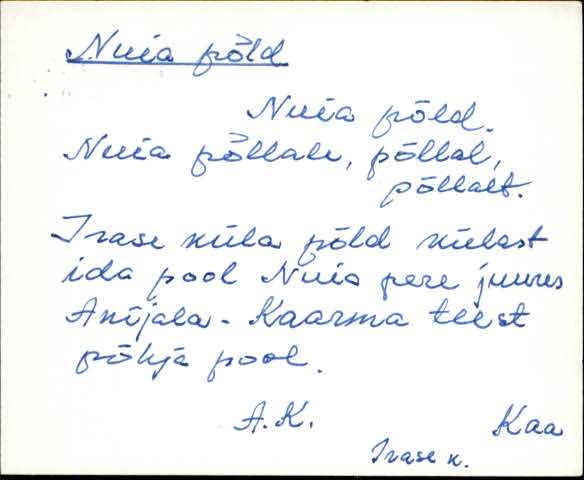 Nuia põld
Nuia põld.
Nuia põllale, põllal,
põllalt.
Irase küla põld külast
ida pool Nuia pere juures
Anijala - Kaarma teest
põhja pool.
A.K.
Kaa
Irase k.